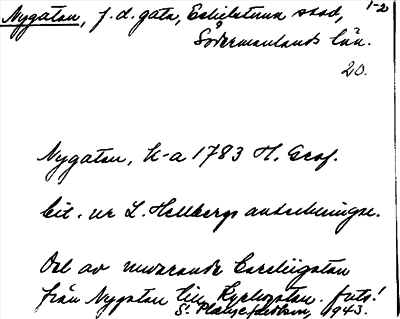 1-2
Nygatan, f.d. gata, Eskilstuna stad,
Södermanlands län.
20.
Nygatan, k-a 1783 H. Graf.
cit. ur L. Hellbergs anteckningar.
Del av nuvarande Careliigatan
från Nygatan till Kyrkogatan. forts!
S. Platse, 1943.